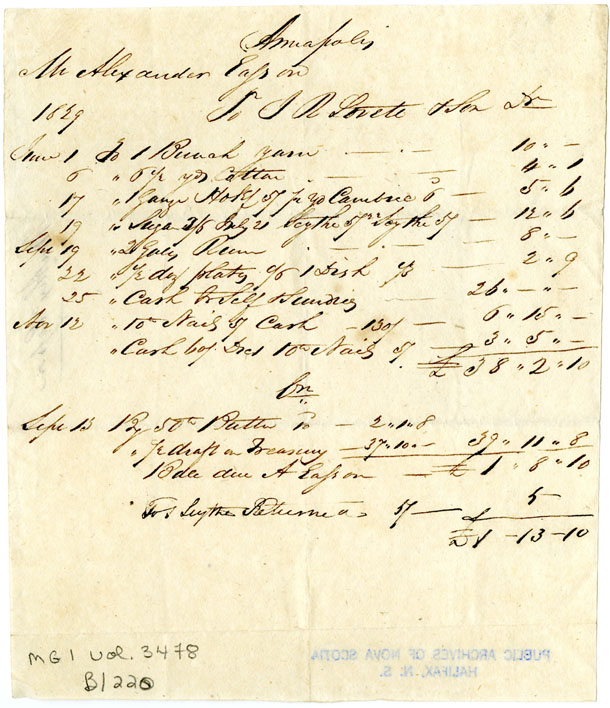 Annapolis
Mr Alexander Easson
1829 To J R Lovett & Son Dr
June 1 To 1 Bunch yarn 10 " -
6 " 6 1/2 yds Cotton 4 " 1
17 " 1 Gauze Hdkf 5/ 1/2 yd Cambric 6 5 " 6
19 " Sugar 2/6 July 21 Scythe 5/ Scythe 5/ - 12 " 6
Sept 19 " 2 Galls Rum 8 " -
22 " 1/2 doz plates 1 Dish 2 " 9
25 " Cash to Self & Sundries 26 " - " -
Nov 12 " 10lb Nails 5/ Cash - 130/ - 6 " 15 " -
" Cash 60/ 10lb Nails 5/ 3 " 5 " -
£ 38 " 2 " 10
Cr
Sept 13 By 50lb Butter 10 - 2 " 1 " 8
" " draft on Treasury - 37 " 10 " - 39 " 11 " 8
Balce due A Easson - £ 1 " 8 " 10
To 1 Scythe Returned 5/ - 5
£ 1 - 13 - 10
MG1 Vol. 3478
B/220
PUBLIC ARCHIVES OF NOVA SCOTIA
HALIFAX, N. S.